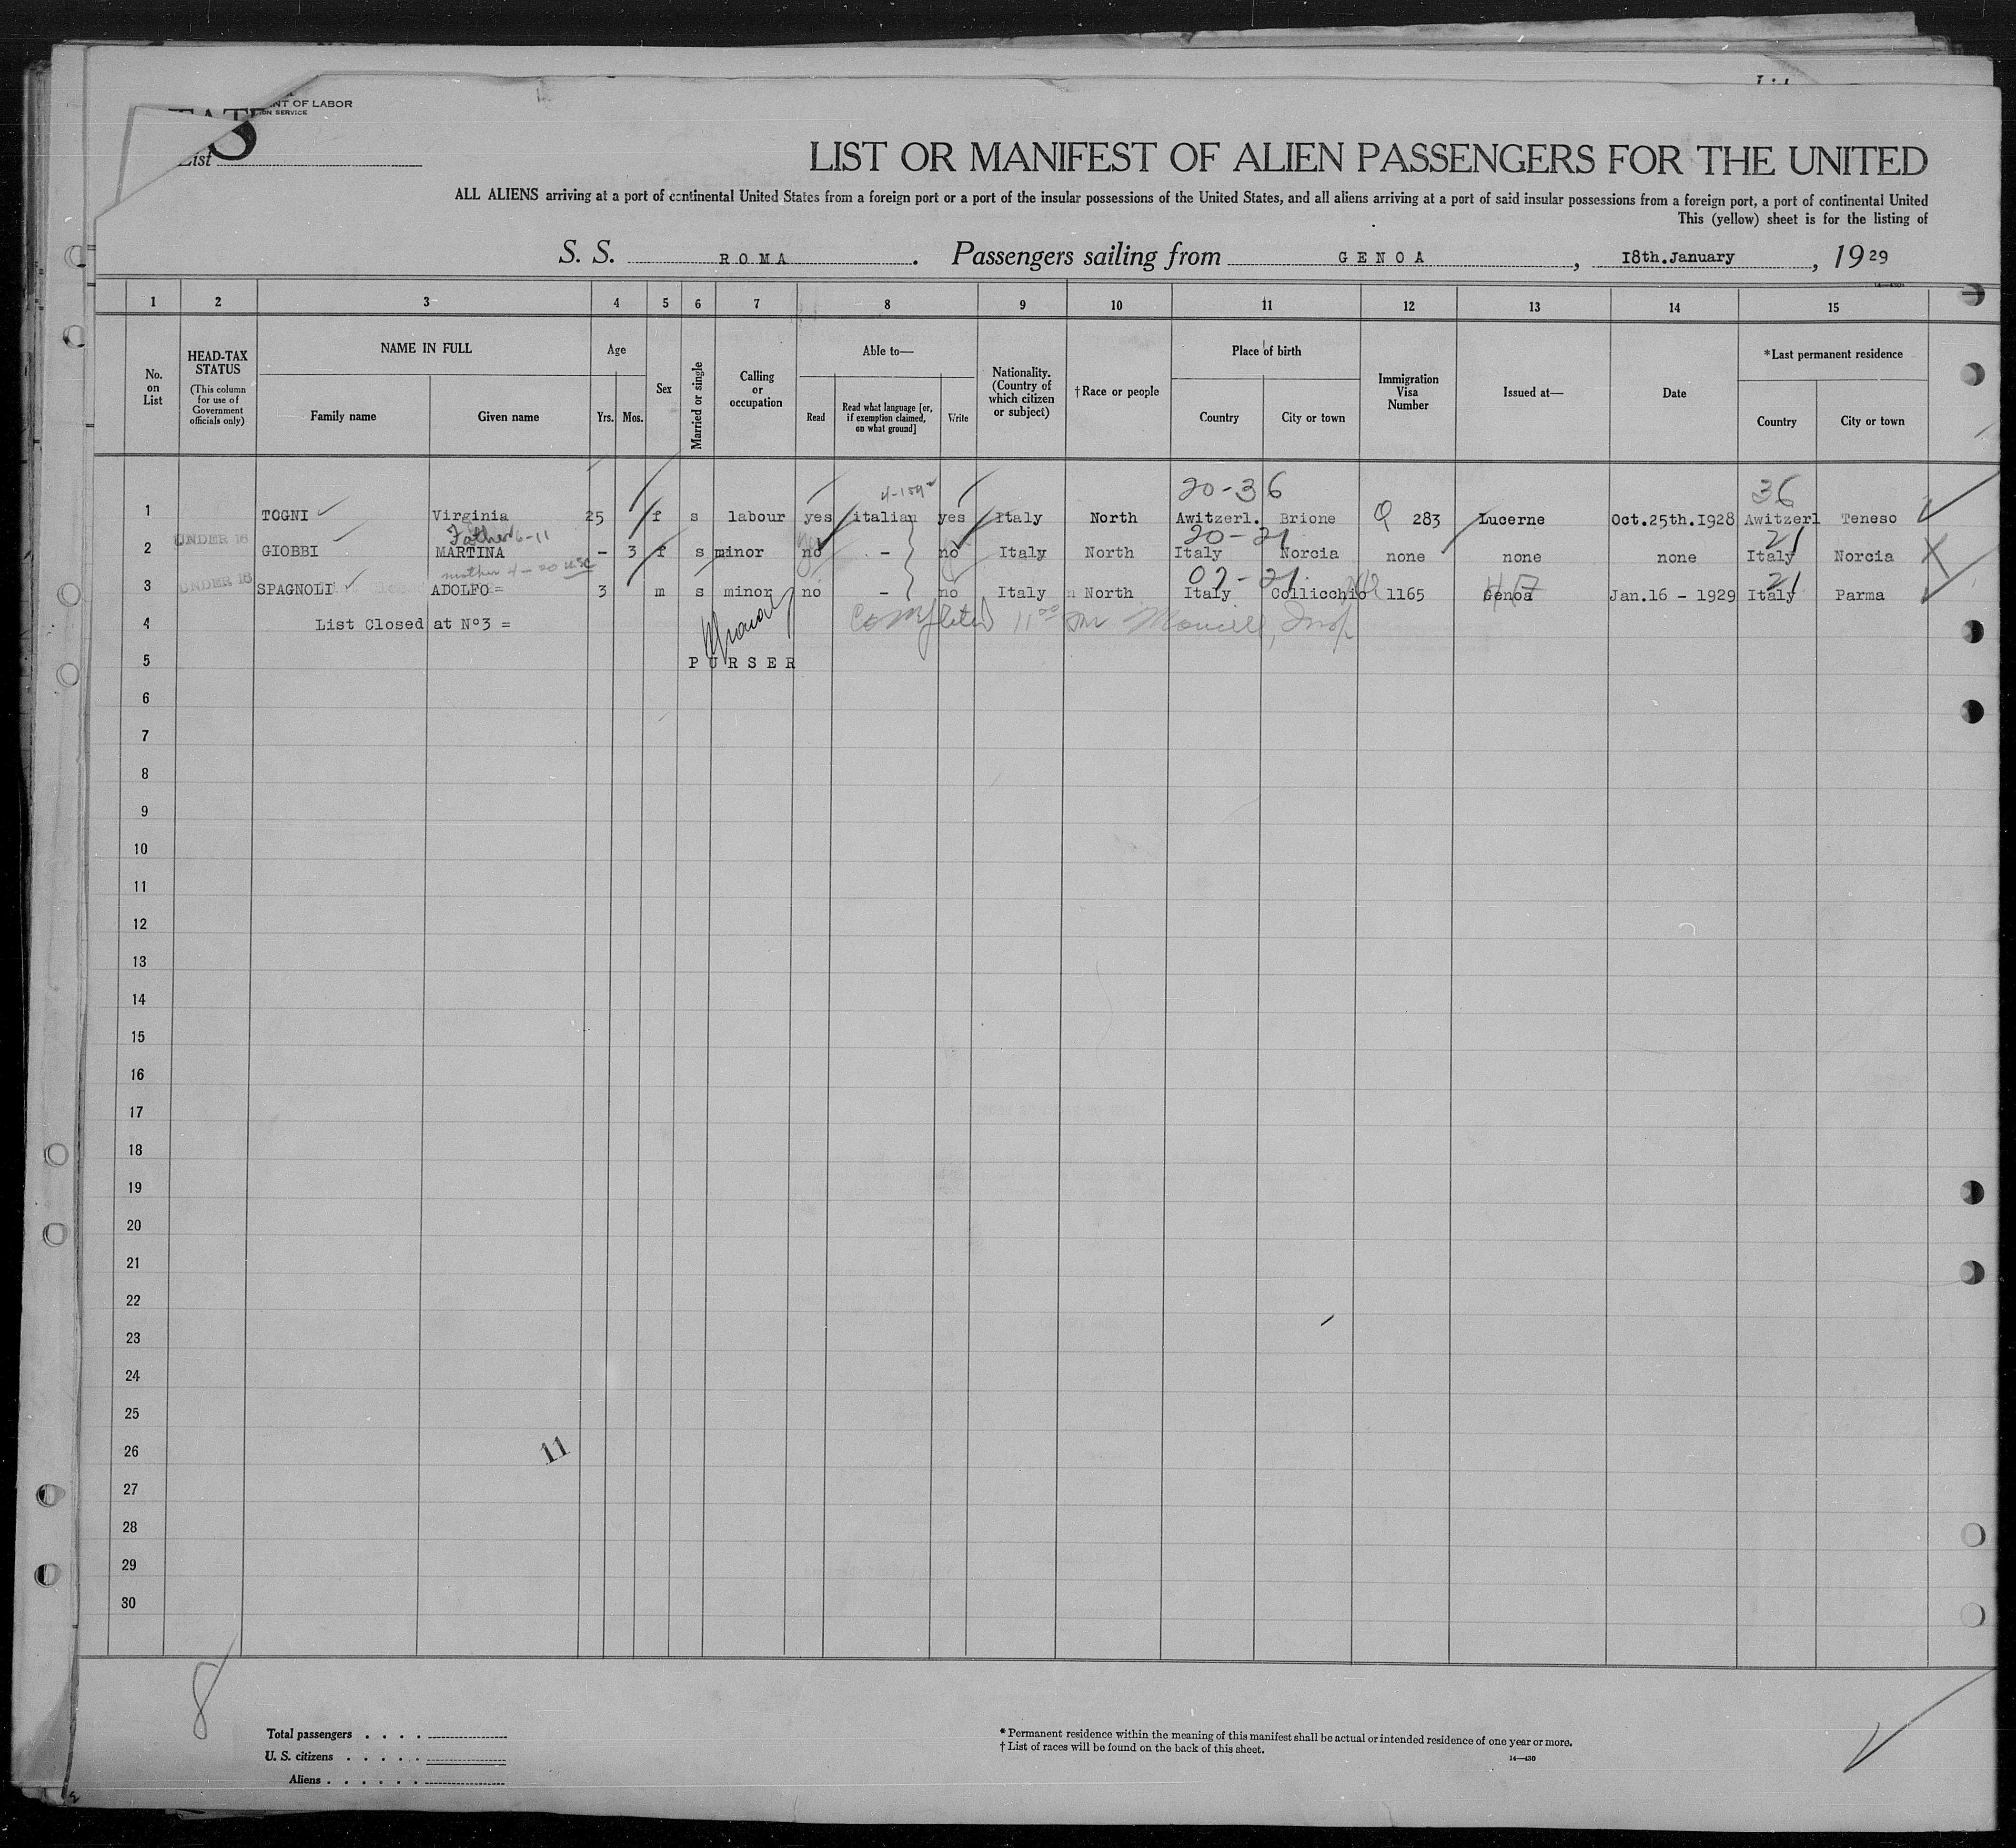 NT OF LABOR
ON SERVICE
List
LIST OR MANIFEST OF ALIEN PASSENGERS FOR THE UNITED
ALL ALIENS arriving at a port of continental United States from a foreign port or a port of the insular possessions of the United States, and all aliens arriving at a port of said insular possessions from a foreign port, a port of continental United
This (yellow) sheet is for the listing of
S. S. ROMA. Passengers sailing from GENOA, 18th.January, 1929
14—430
1 2 3 4 5 6 7 8 9 10 11 12 13 14 15
No. on List
HEAD-TAX STATUS (This column for use of Government officials only)
NAME IN FULL
Family name Given name
Age
Yrs. Mos.
Sex
Married or single
Calling or occupation
Able to—
Read
Read what language [or, if exemption claimed, on what ground]
Write
Nationality. (Country of which citizen or subject)
†Race or people
Place of birth
Country City or town
Immigration Visa Number
Issued at—
Date
*Last permanent residence
Country City or town
20-36 36
1 TOGNI Virginia 25 f s labour yes italian yes Italy North Awitzerl. Brione Q 283 Lucerne Oct.25th.1928 Awitzerl Teneso
Father 6-11 20-21 21
2 UNDER 16 GIOBBI MARTINA - 3 f s minor no - no Italy North Italy Norcia none none none Italy Norcia
mother 4-20 USC 07-21 21
3 UNDER 16 SPAGNOLI ADOLFO= 3 m s minor no - no Italy North Italy Collicchio 1165 Genoa Jan.16 - 1929 Italy Parma
4 List Closed at Nº3 = Completed
5 PURSER
6
7
8
9
10
11
12
13
14
15
16
17
18
19
20
21
22
23
24
25
26
11
27
28
29
30
8
Total passengers . . . .
U. S. citizens . . . . .
Aliens . . . . . .
* Permanent residence within the meaning of this manifest shall be actual or intended residence of one year or more.
† List of races will be found on the back of this sheet.
14—430